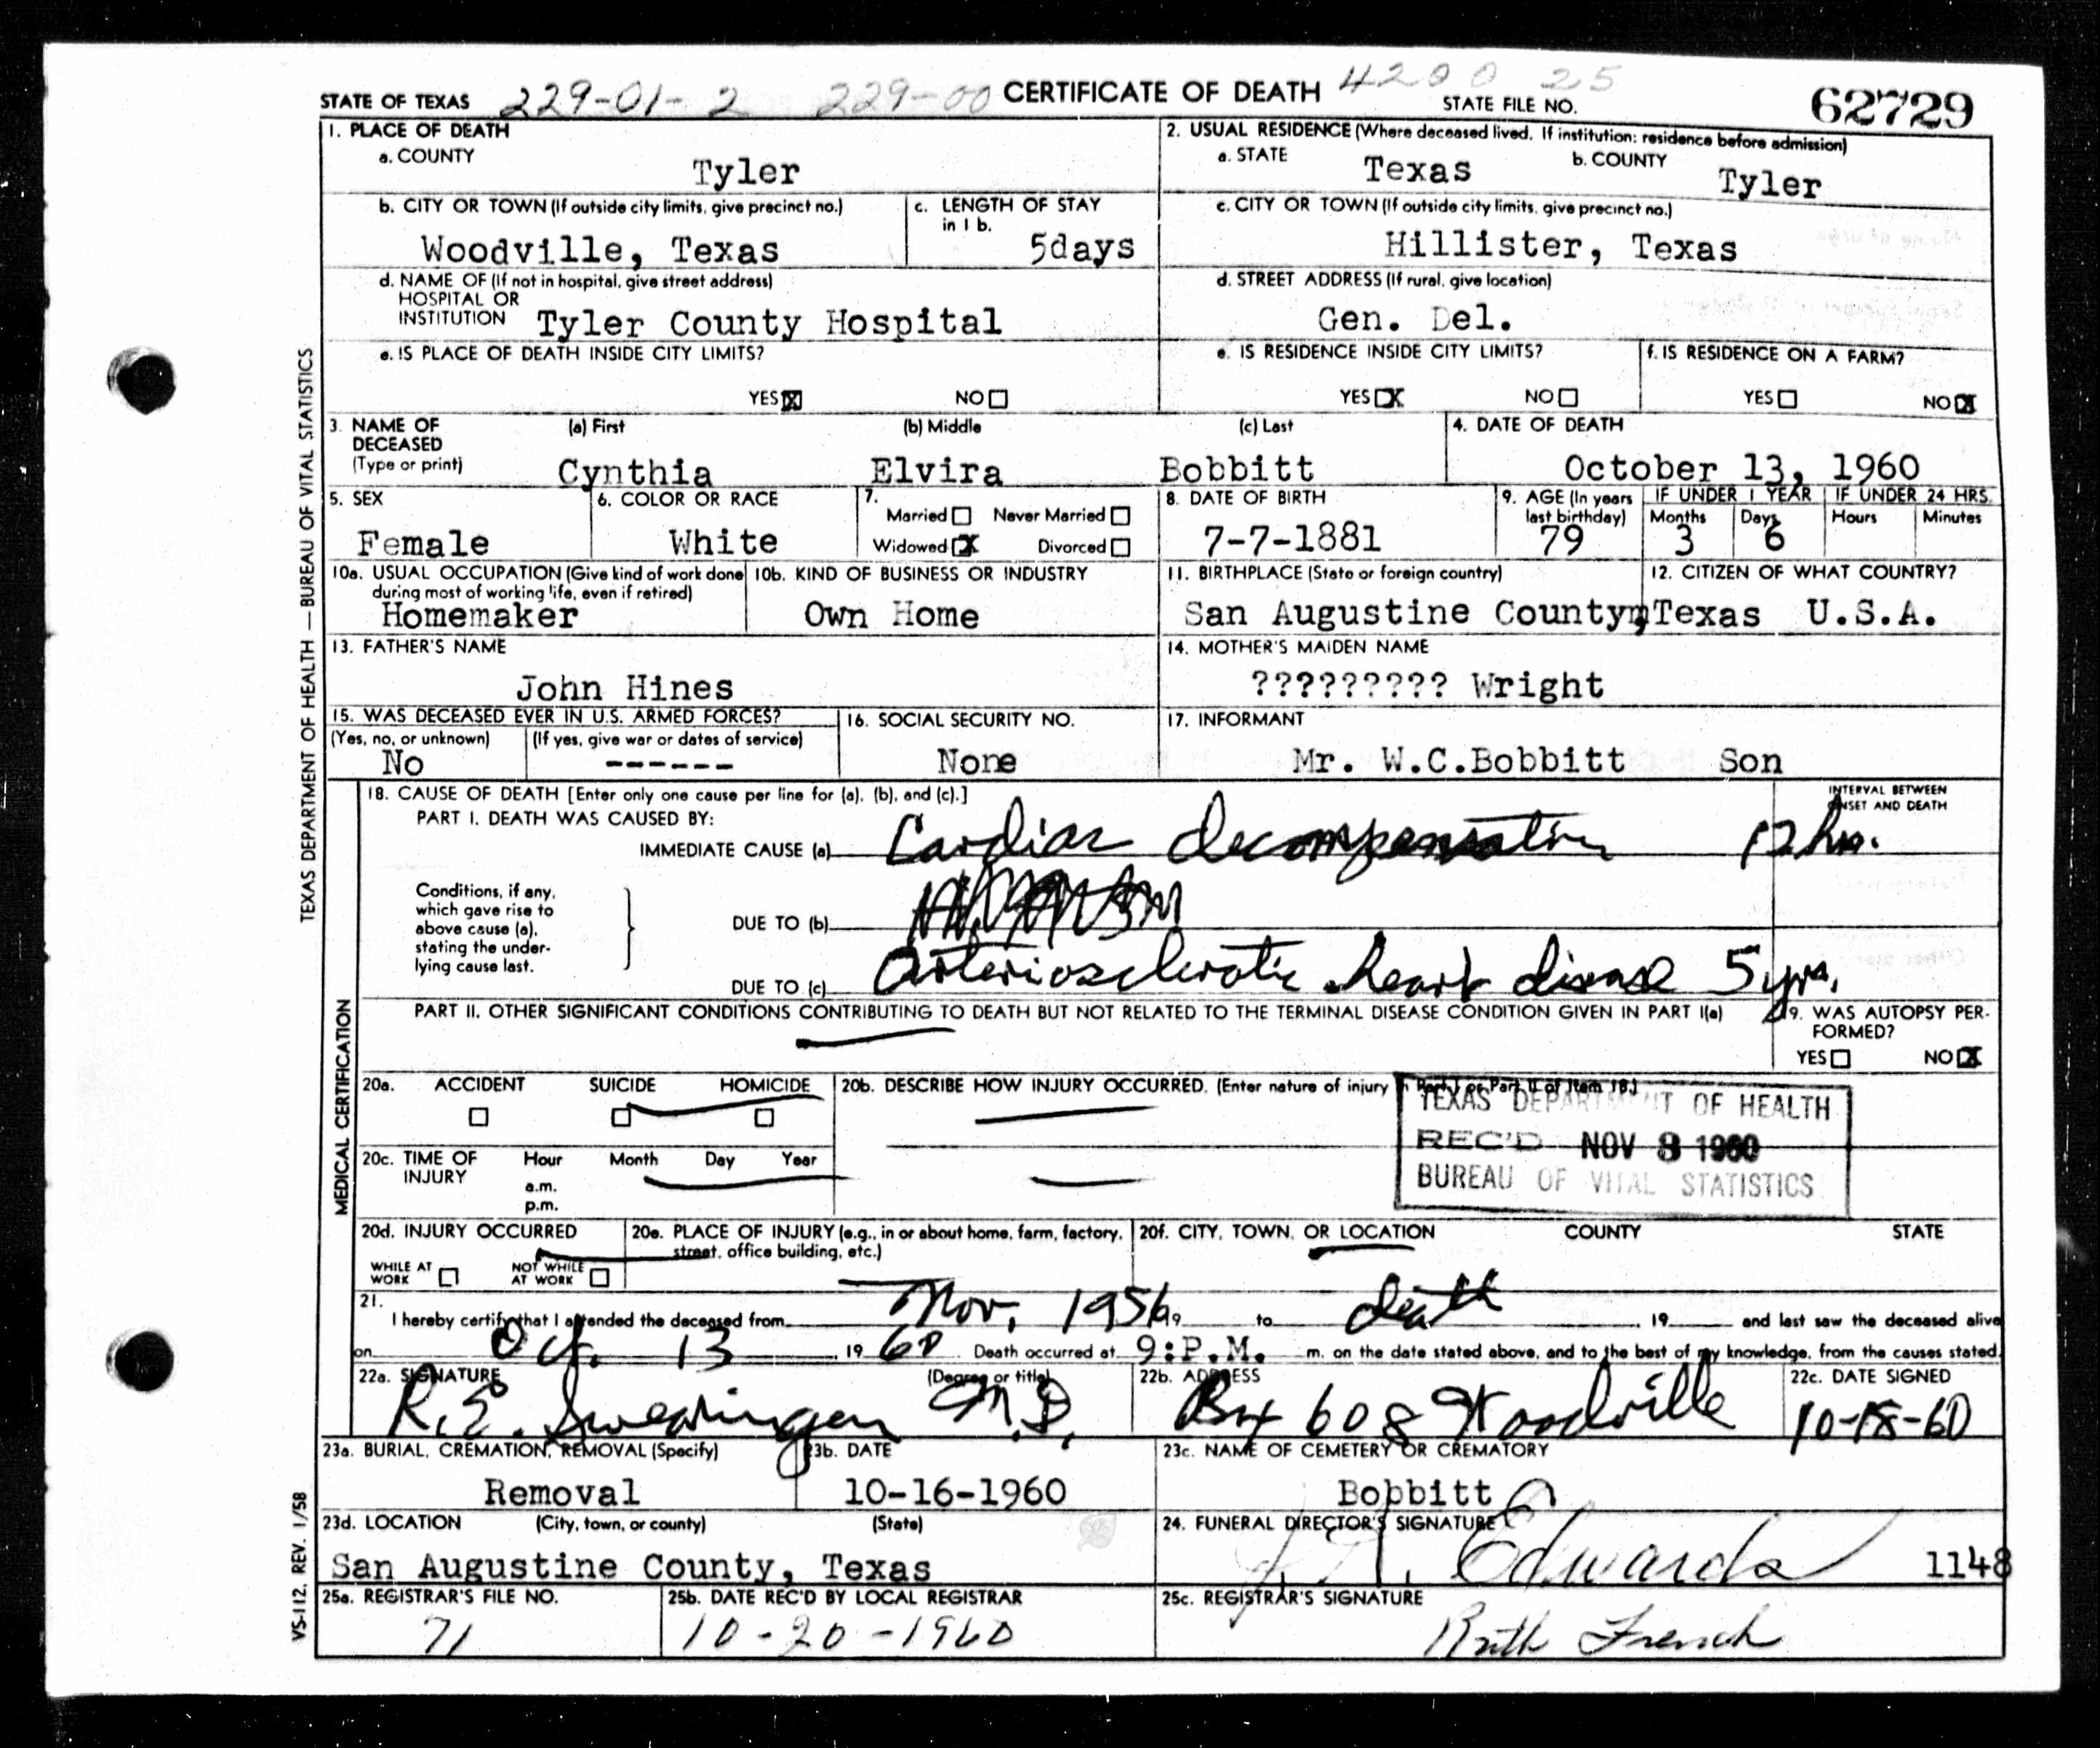 STATE OF TEXAS 229-01-2 229-00 CERTIFICATE OF DEATH 4200 25 STATE FILE NO. 62729
1. PLACE OF DEATH
a. COUNTY
Tyler
2. USUAL RESIDENCE (Where deceased lived. If institution: residence before admission)
a. STATE Texas b. COUNTY Tyler
b. CITY OR TOWN (If outside city limits, give precinct no.)
Woodville, Texas
c. LENGTH OF STAY in 1 b.
5days
c. CITY OR TOWN (If outside city limits, give precinct no.)
Hillister, Texas
d. NAME OF (If not in hospital, give street address)
HOSPITAL OR
INSTITUTION Tyler County Hospital
d. STREET ADDRESS (If rural, give location)
Gen. Del.
e. IS PLACE OF DEATH INSIDE CITY LIMITS?
YES X NO
e. IS RESIDENCE INSIDE CITY LIMITS?
YES X NO
f. IS RESIDENCE ON A FARM?
YES NO X
3. NAME OF DECEASED (Type or print)
(a) First (b) Middle (c) Last
Cynthia Elvira Bobbitt
4. DATE OF DEATH
October 13, 1960
5. SEX
Female
6. COLOR OR RACE
White
7.
Married Never Married
Widowed X Divorced
8. DATE OF BIRTH
7-7-1881
9. AGE (In years last birthday)
79
IF UNDER 1 YEAR
Months Days
3 6
IF UNDER 24 HRS.
Hours Minutes
10a. USUAL OCCUPATION (Give kind of work done during most of working life, even if retired)
Homemaker
10b. KIND OF BUSINESS OR INDUSTRY
Own Home
11. BIRTHPLACE (State or foreign country)
San Augustine County, Texas
12. CITIZEN OF WHAT COUNTRY?
U.S.A.
13. FATHER'S NAME
John Hines
14. MOTHER'S MAIDEN NAME
????????? Wright
15. WAS DECEASED EVER IN U.S. ARMED FORCES?
(Yes, no, or unknown) (If yes, give war or dates of service)
No ------
16. SOCIAL SECURITY NO.
None
17. INFORMANT
Mr. W.C.Bobbitt Son
18. CAUSE OF DEATH [Enter only one cause per line for (a), (b), and (c).]
INTERVAL BETWEEN ONSET AND DEATH
PART I. DEATH WAS CAUSED BY:
IMMEDIATE CAUSE (a) Cardiac decompensation 12 hrs.
Conditions, if any, which gave rise to above cause (a), stating the underlying cause last.
DUE TO (b)
DUE TO (c) Arteriosclerotic heart disease 5 yrs.
PART II. OTHER SIGNIFICANT CONDITIONS CONTRIBUTING TO DEATH BUT NOT RELATED TO THE TERMINAL DISEASE CONDITION GIVEN IN PART I(a)
19. WAS AUTOPSY PERFORMED?
YES NO X
20a. ACCIDENT SUICIDE HOMICIDE
20b. DESCRIBE HOW INJURY OCCURRED. (Enter nature of injury in Part I or Part II of Item 18.)
TEXAS DEPARTMENT OF HEALTH
REC'D NOV 8 1960
BUREAU OF VITAL STATISTICS
20c. TIME OF INJURY Hour Month Day Year
a.m.
p.m.
20d. INJURY OCCURRED
WHILE AT WORK NOT WHILE AT WORK
20e. PLACE OF INJURY (e.g., in or about home, farm, factory, street, office building, etc.)
20f. CITY, TOWN, OR LOCATION COUNTY STATE
21.
I hereby certify that I attended the deceased from Nov. 1956 19 to death, 19 and last saw the deceased alive
on Oct. 13, 19 60 Death occurred at 9:P.M. m. on the date stated above, and to the best of my knowledge, from the causes stated.
22a. SIGNATURE (Degree or title)
R. E. Swearingen M.D.
22b. ADDRESS
Box 608 Woodville
22c. DATE SIGNED
10-18-60
23a. BURIAL, CREMATION, REMOVAL (Specify)
Removal
23b. DATE
10-16-1960
23c. NAME OF CEMETERY OR CREMATORY
Bobbitt
23d. LOCATION (City, town, or county) (State)
San Augustine County, Texas
24. FUNERAL DIRECTOR'S SIGNATURE
Edwards 1148
25a. REGISTRAR'S FILE NO.
71
25b. DATE REC'D BY LOCAL REGISTRAR
10-20-1960
25c. REGISTRAR'S SIGNATURE
Ruth French
TEXAS DEPARTMENT OF HEALTH — BUREAU OF VITAL STATISTICS
MEDICAL CERTIFICATION
VS-112, REV. 1/58